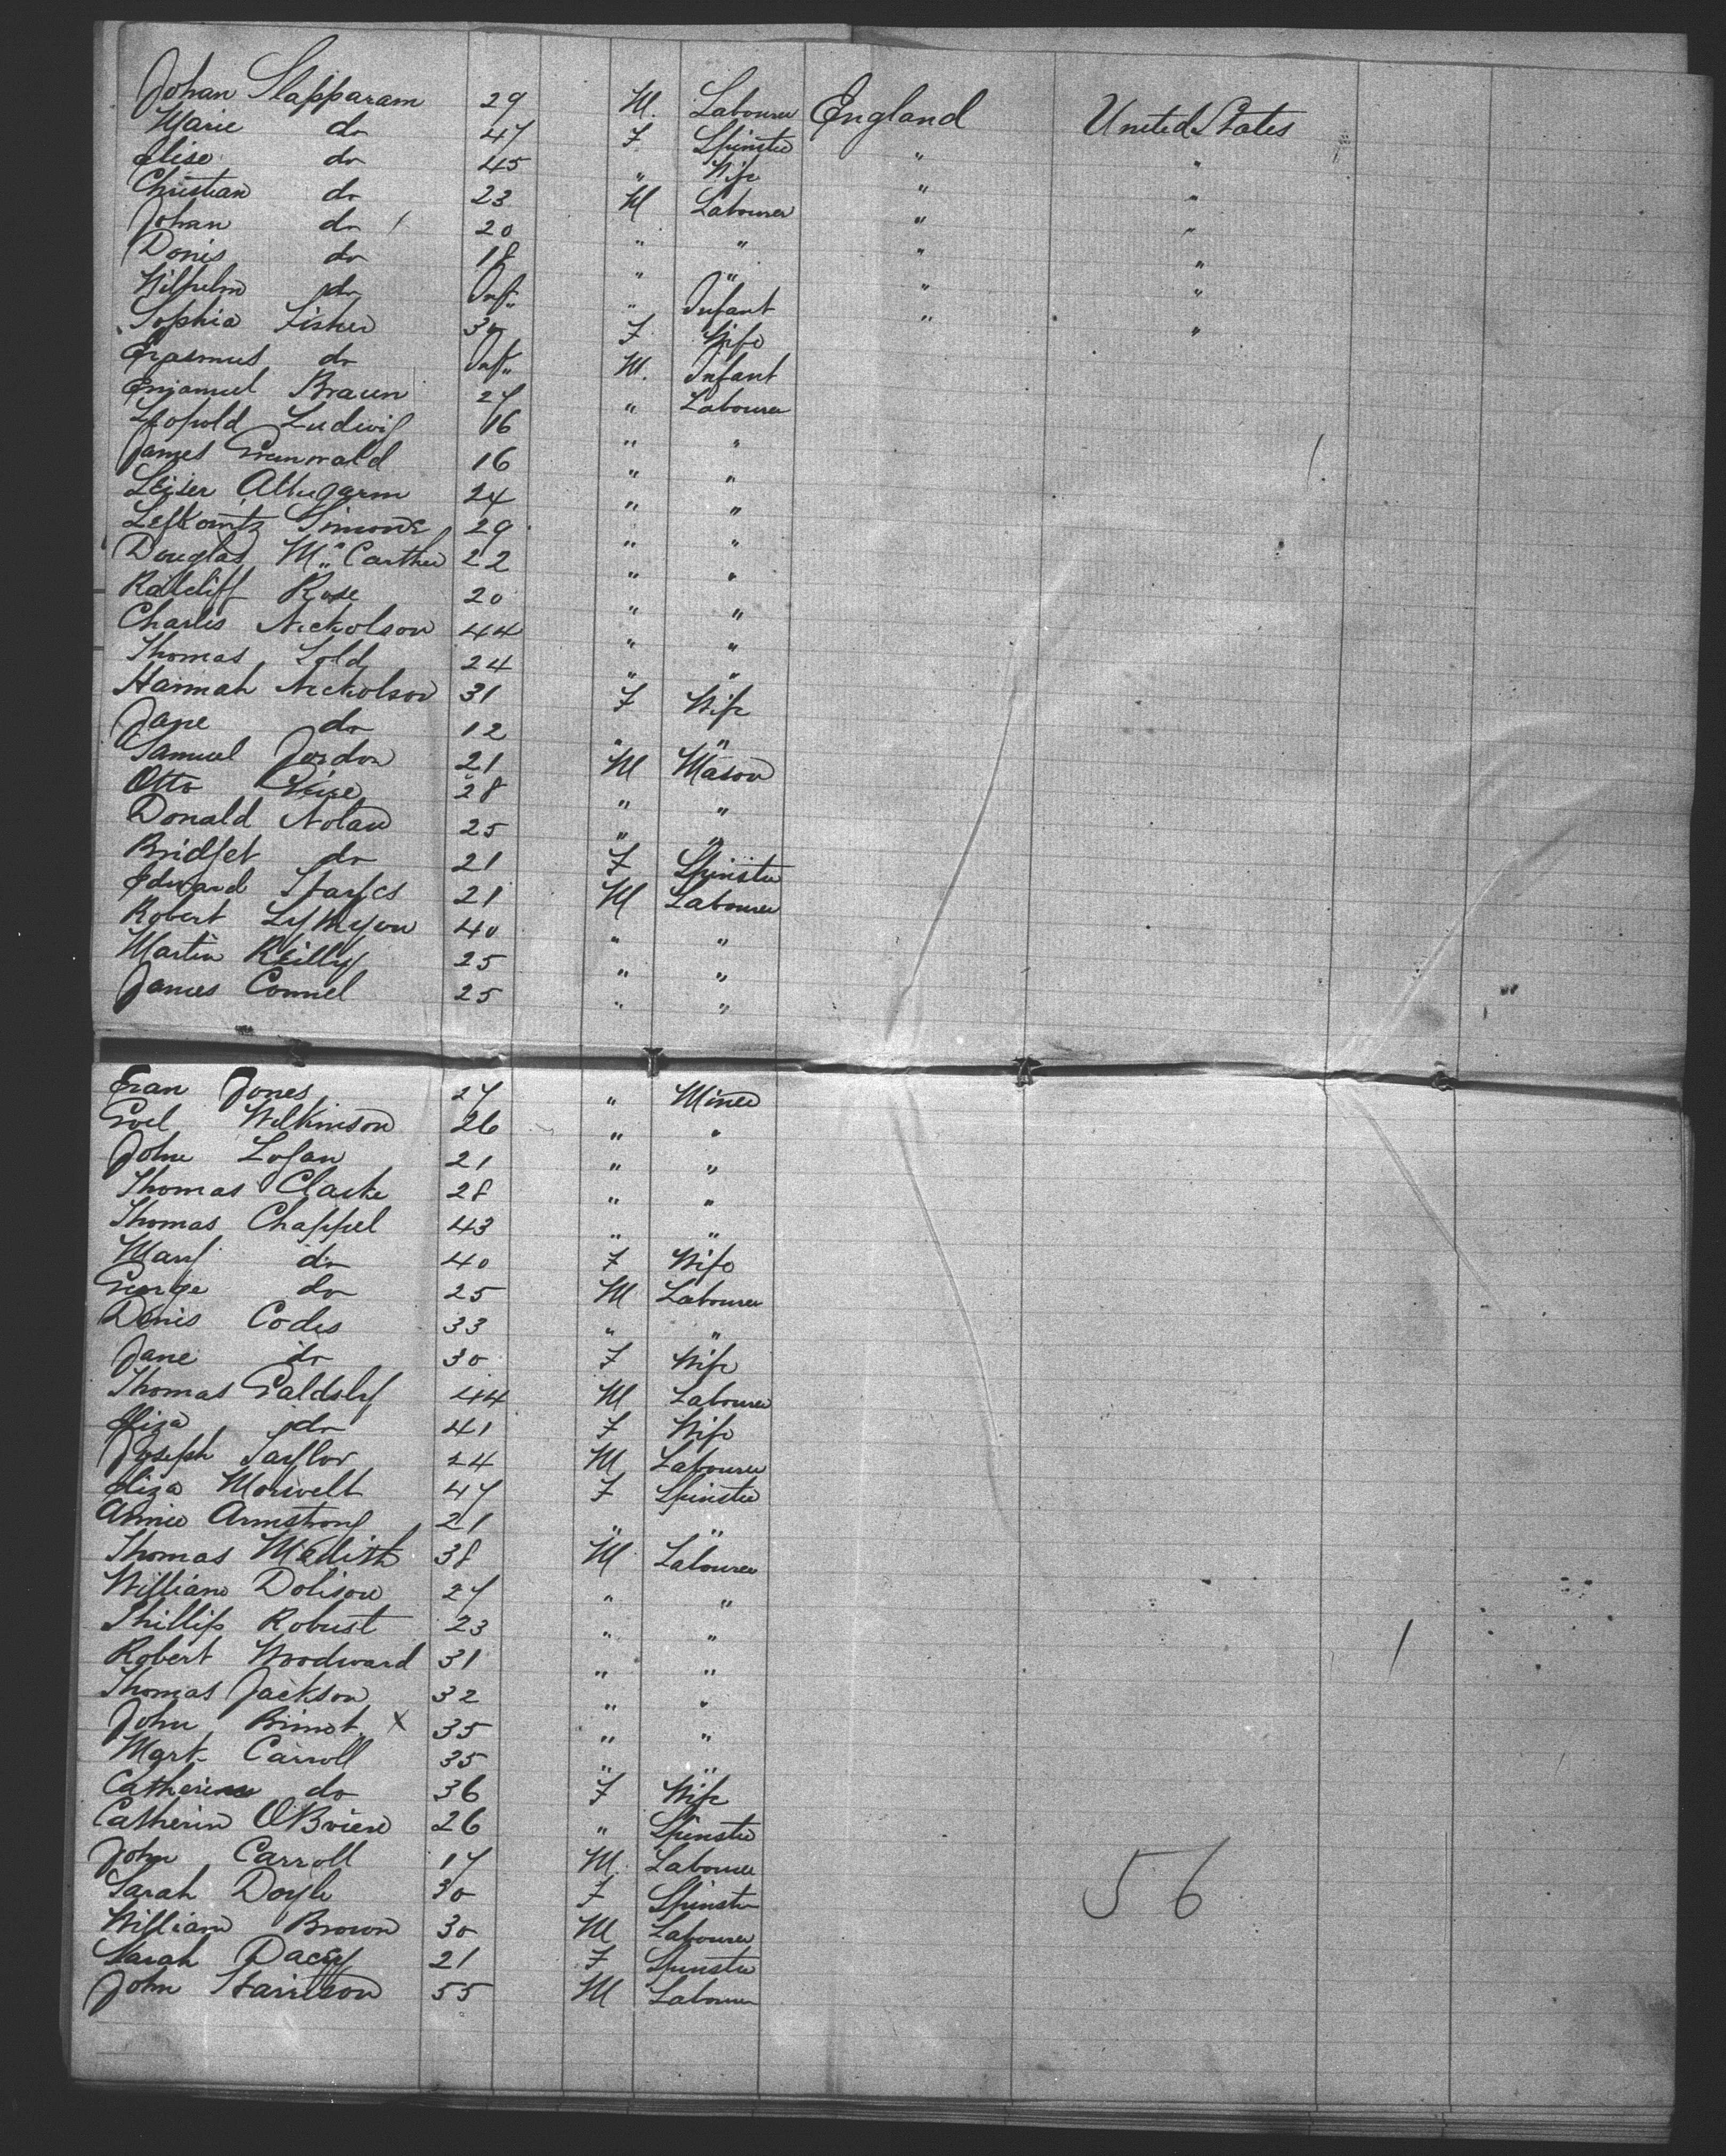 Johan Slapparam 29 M. Labourer England United States
Marie do 47 F Spinster " "
Elise do 45 " Wife " "
Christian do 23 M Labourer " "
Johan do 20 " " " "
Donis do 18 " " " "
Wilhelm do Inft " Infant " "
Sophia Fisher 30 F Wife
Erasmus do Inft M. Infant
Emanuel Braun 27 " Labourer
Leopold Ludwig 16 " "
James Grunwald 16 " "
Leiser 24 " "
Lefkowitz Simon 29 " "
Douglas McCarther 22 " "
Ratcliff Rose 20 " "
Charles Nickolson 44 " "
Thomas Lold 24 " "
Hannah Nickolson 31 F Wife
Jane do 12 " "
Samuel Jordon 21 M Mason
Otto 28 " "
Donald Nolan 25 " "
Bridget do 21 F Spinster
Edward 21 M Labourer
Robert 40 " "
Martin Reilly 25 " "
James Connel 25 " "
Evan Jones 27 " Miner
Wilkinson 26 " "
John Logan 21 " "
Thomas Clarke 28 " "
Thomas Chappel 43 " "
Mary do 40 F Wife
George do 25 M Labourer
Denis Codes 33 " "
Jane do 30 F Wife
Thomas Galdsly 44 M Labourer
Eliza do 41 F Wife
Joseph Taylor 24 M Labourer
Eliza 47 F Spinster
Annie Armstrong 21 " "
Thomas 38 M Labourer
William Dolison 27 " "
Phillip Robust 23 " "
Robert Woodward 31 " "
Thomas Jackson 32 " "
John X 35 " "
Mart Carroll 35 " "
Catherine do 36 F Wife
Catherin O'Brien 26 " Spinster
John Carroll 17 M. Labourer
Sarah Doyle 30 F Spinster 56
William Brown 30 M Labourer
Sarah Dacey 21 F Spinster
John Harrison 55 M Labourer